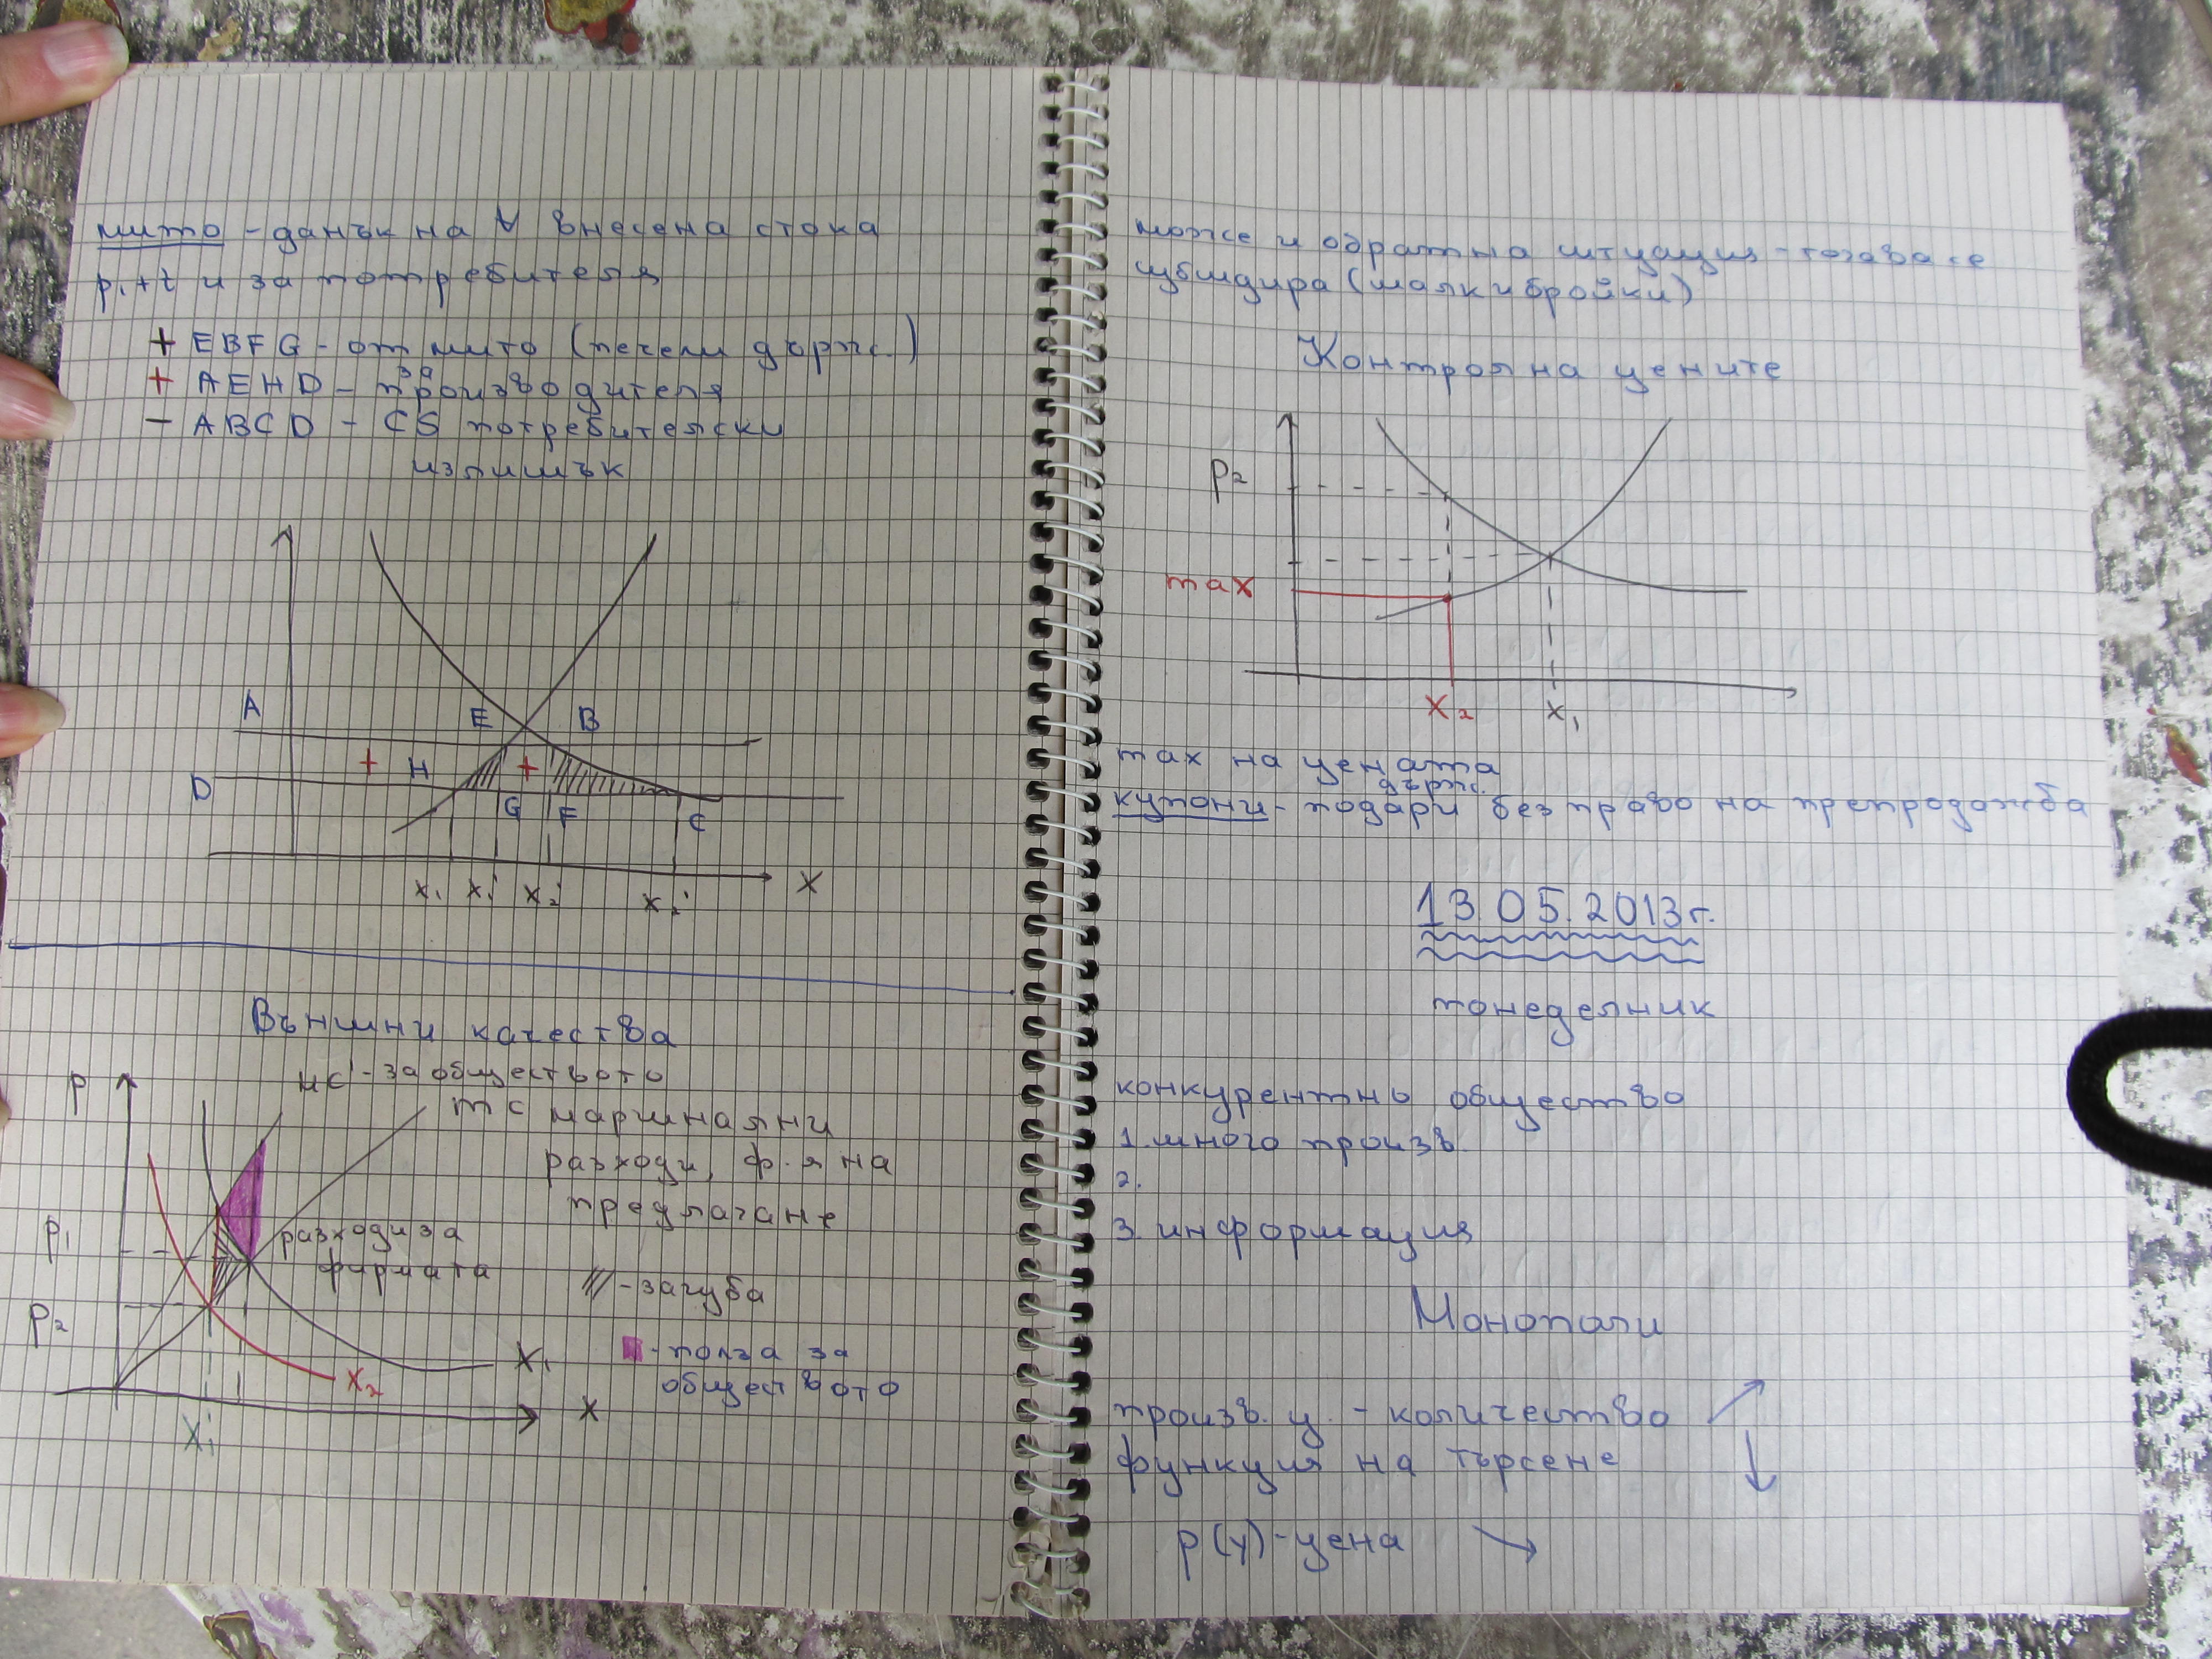 мито - данък на ∀ внесена стока
p₁+t и за потребителя
+ EBFG - от мито (печели държ.)
+ AEHD - за производителя
- ABCD - CS потребителски
излишък
A
E
B
+
H
+
D
G
F
C
x₁ x₁' x₂' x₂'
X
Външни качества
p
MC' - за обществото
mc маргинални
разходи, ф.я на
предлагане
p₁
разходи за
фирмата
/// - загуба
p₂
- полза за
обществото
X₁
X₂
X
X₁'
може и обратна ситуация - тогава се
субсидира (малки бройки)
Контрол на цените
p₂
max
X₂
X₁
max на цената
държ.
купони - подари без право на препродажба
13.05.2013г.
понеделник
конкурентно общество
1. много произв.
2.
3. информация
Монополи
произв. y. - количество ↗
функция на търсене ↓
p(y) - цена ↘